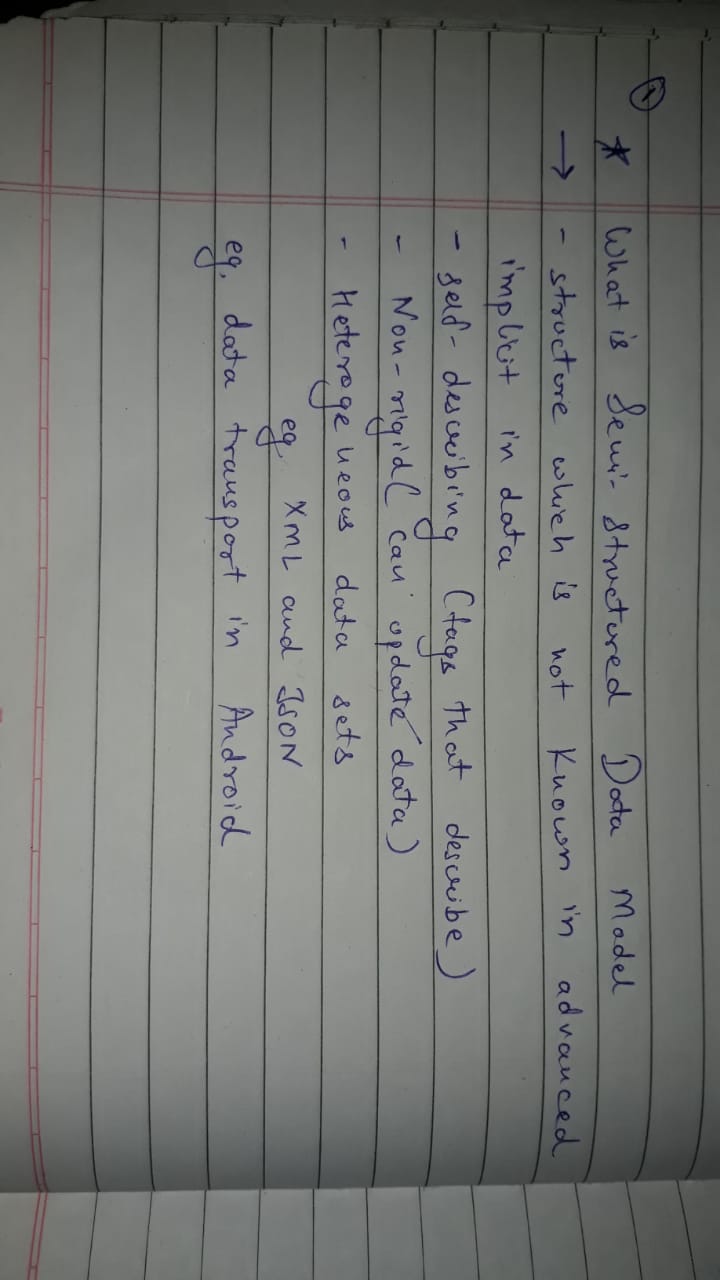 ①
* What is Semi-Structured Data Model
→ - structure which is not known in advanced
implicit in data
- self-describing (tags that describe)
- Non-rigid (can update data)
- Heterogeneous data sets
eg. XML and JSON
eg. data transport in Android